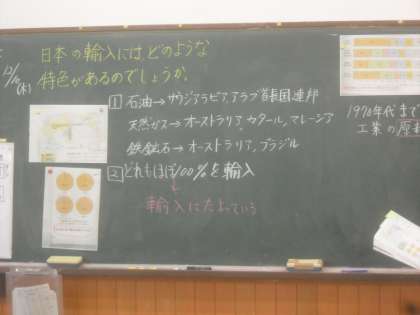 12/10(木)
日本の輸入には、どのような
特色があるのでしょうか。
1 石油→サウジアラビア、アラブ首長国連邦
天然ガス→オーストラリア、カタール、マレーシア
鉄鉱石→オーストラリア、ブラジル
2 どれもほぼ100%を輸入
↓
輸入にたよっている
1970年代まで
工業の原